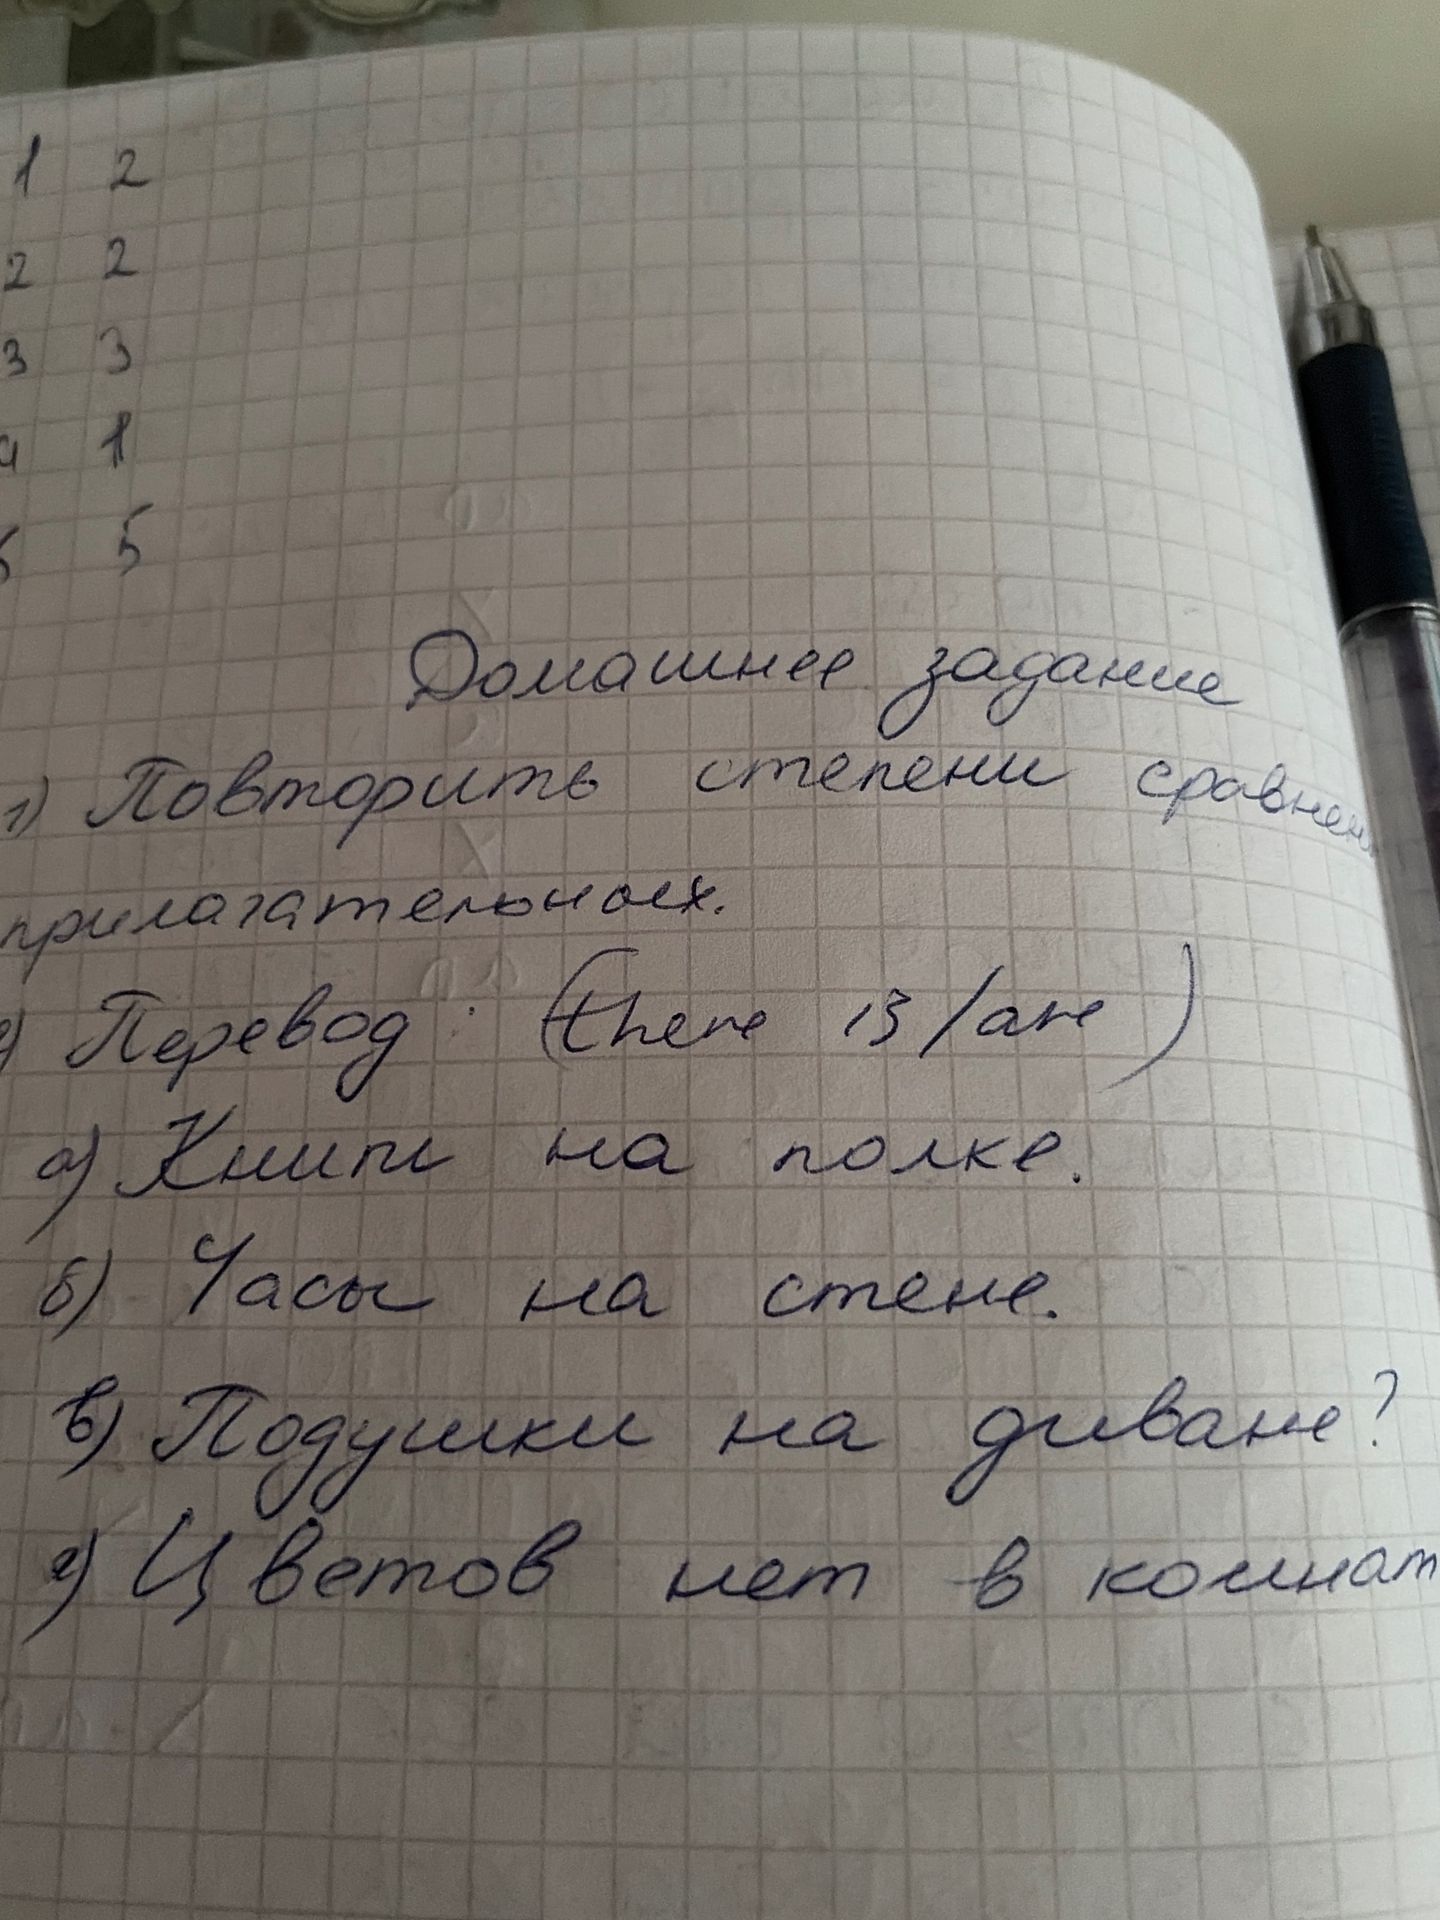 1 2
2 2
3 3
4 1
5 5
Домашнее задание
1) Повторить степени сравнен
прилагательных.
2) Перевод: (there is/are)
а) Книги на полке.
б) Часы на стене.
в) Подушки на диване?
г) Цветов нет в комнат